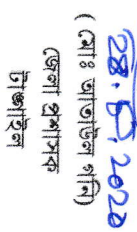 ২৪.৮.২০২০
( মোঃ আতাউল গনি)
জেলা প্রশাসক
টাঙ্গাইল